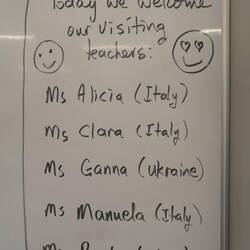 Today we welcome
our visiting
teachers:
Ms Alicia (Italy)
Ms Clara (Italy)
Ms Ganna (Ukraine)
Ms Manuela (Italy)